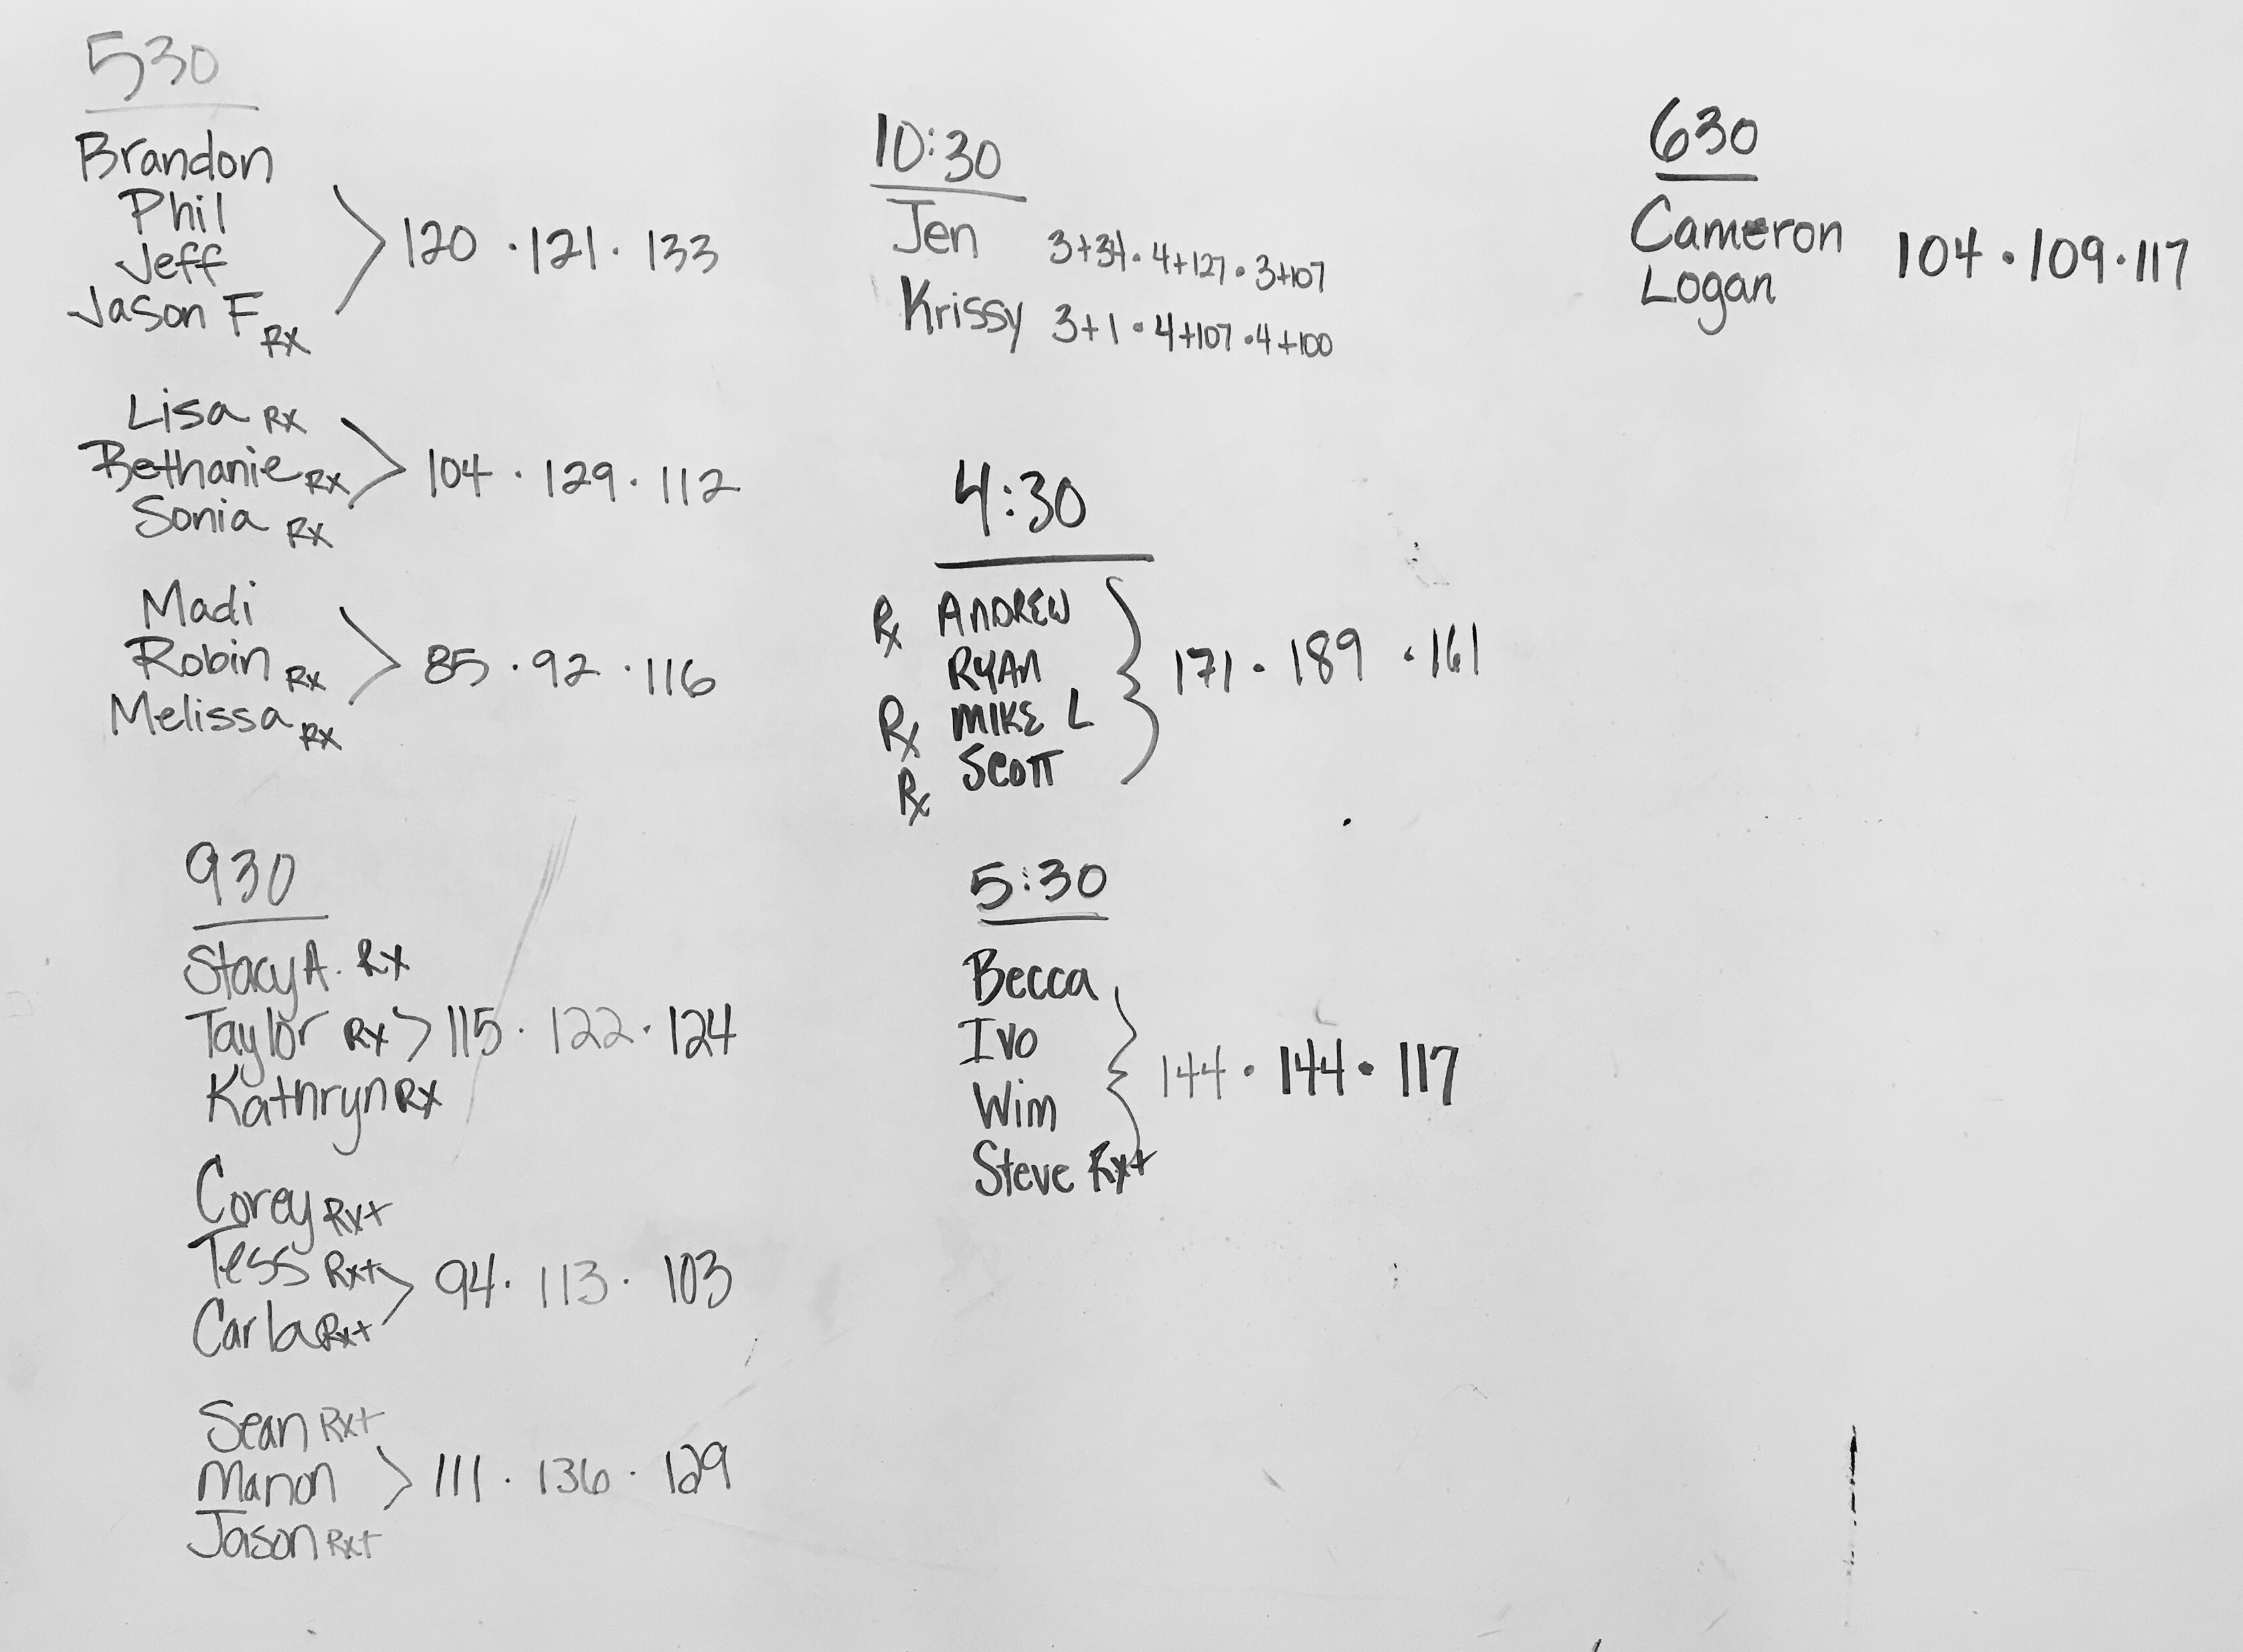 530
Brandon
Phil
Jeff
Jason F Rx
120 · 121 · 133
Lisa Rx
Bethanie Rx
Sonia Rx
104 · 129 · 112
Madi
Robin Rx
Melissa Rx
85 · 92 · 116
930
Stacy A. Rx
Taylor Rx > 115 · 122 · 124
Kathryn Rx
Corey Rx+
Tess Rx+
Carla Rx+
94 · 113 · 103
Sean Rx+
Manon
Jason Rx+
111 · 136 · 129
10:30
Jen 3+34 · 4+127 · 3+107
Krissy 3+1 · 4+107 · 4+100
4:30
Rx ANDREW
RYAN
Rx MIKE L
Rx SCOTT
171 · 189 · 161
5:30
Becca
Ivo
Wim
Steve Rx+
144 · 144 · 117
630
Cameron
Logan
104 · 109 · 117